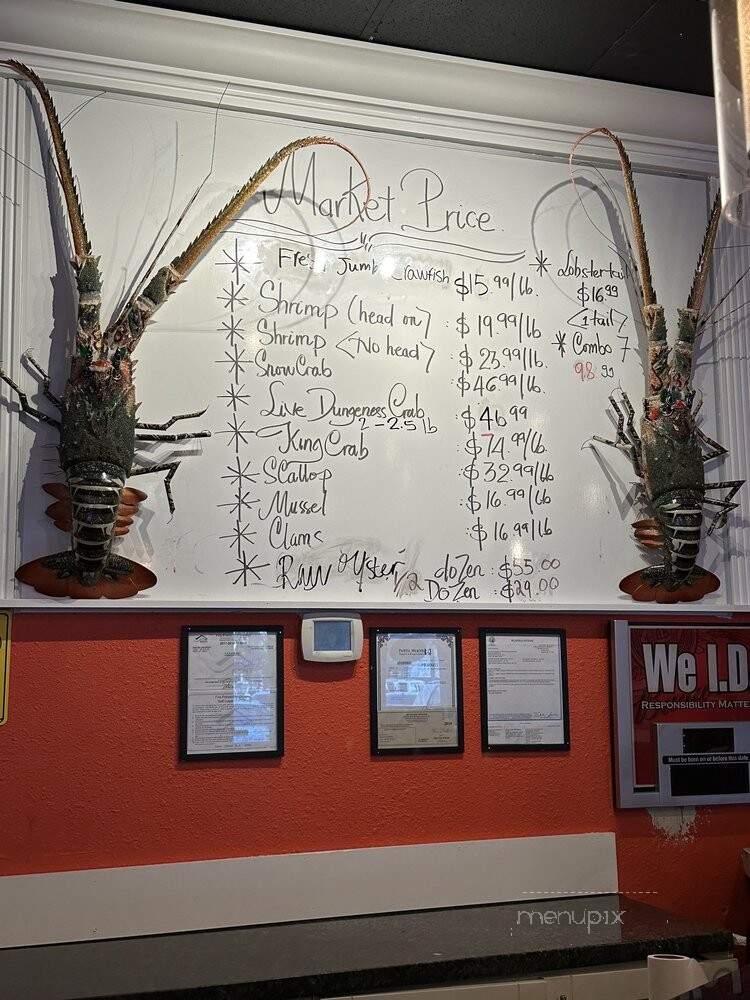 Market Price
* Fresh Jumbo Crawfish $15.99/lb.
* Shrimp (head on) : $19.99/lb
* Shrimp <No head> : $23.99/lb
* Snow Crab $46.99/lb.
* Live Dungeness Crab : $46.99
2-2.5 lb
* King Crab : $74.99/lb.
* SCallop : $32.99/lb
* Mussel : $16.99/lb
* Clams : $16.99/lb
* Raw Oyster dozen : $55.00
1/2 DoZen : $29.00
* Lobster tail
$16.99
<1 tail>
* Combo 7
98.99
We I.D
RESPONSIBILITY MATTE
Must be born on or before this date
menupix